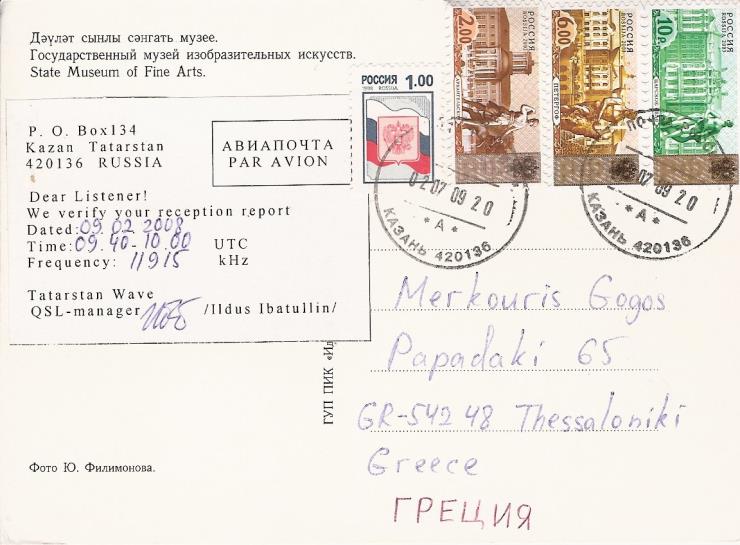 Дәүләт сынлы сәнгать музее.
Государственный музей изобразительных искусств.
State Museum of Fine Arts.
P. O. Box134
Kazan Tatarstan
420136 RUSSIA
АВИАПОЧТА
PAR AVION
Dear Listener!
We verify your reception report
Dated: 09.02 2008
Time: 09.40-10.00 UTC
Frequency: 11915 kHz
Tatarstan Wave
QSL-manager /Ildus Ibatullin/
Фото Ю. Филимонова.
ГУП ПИК «Ид
РОССИЯ 1.00
1998 ROSSIJA
2.00
РОССИЯ
6.00
РОССИЯ
ПЕТЕРГОФ
10р
РОССИЯ
02 07 09 20
*А*
КАЗАНЬ 420136
07 09 20
*А*
КАЗАНЬ 420136
Merkouris Gogos
Papadaki 65
GR-542 48 Thessaloniki
Greece
ГРЕЦИЯ